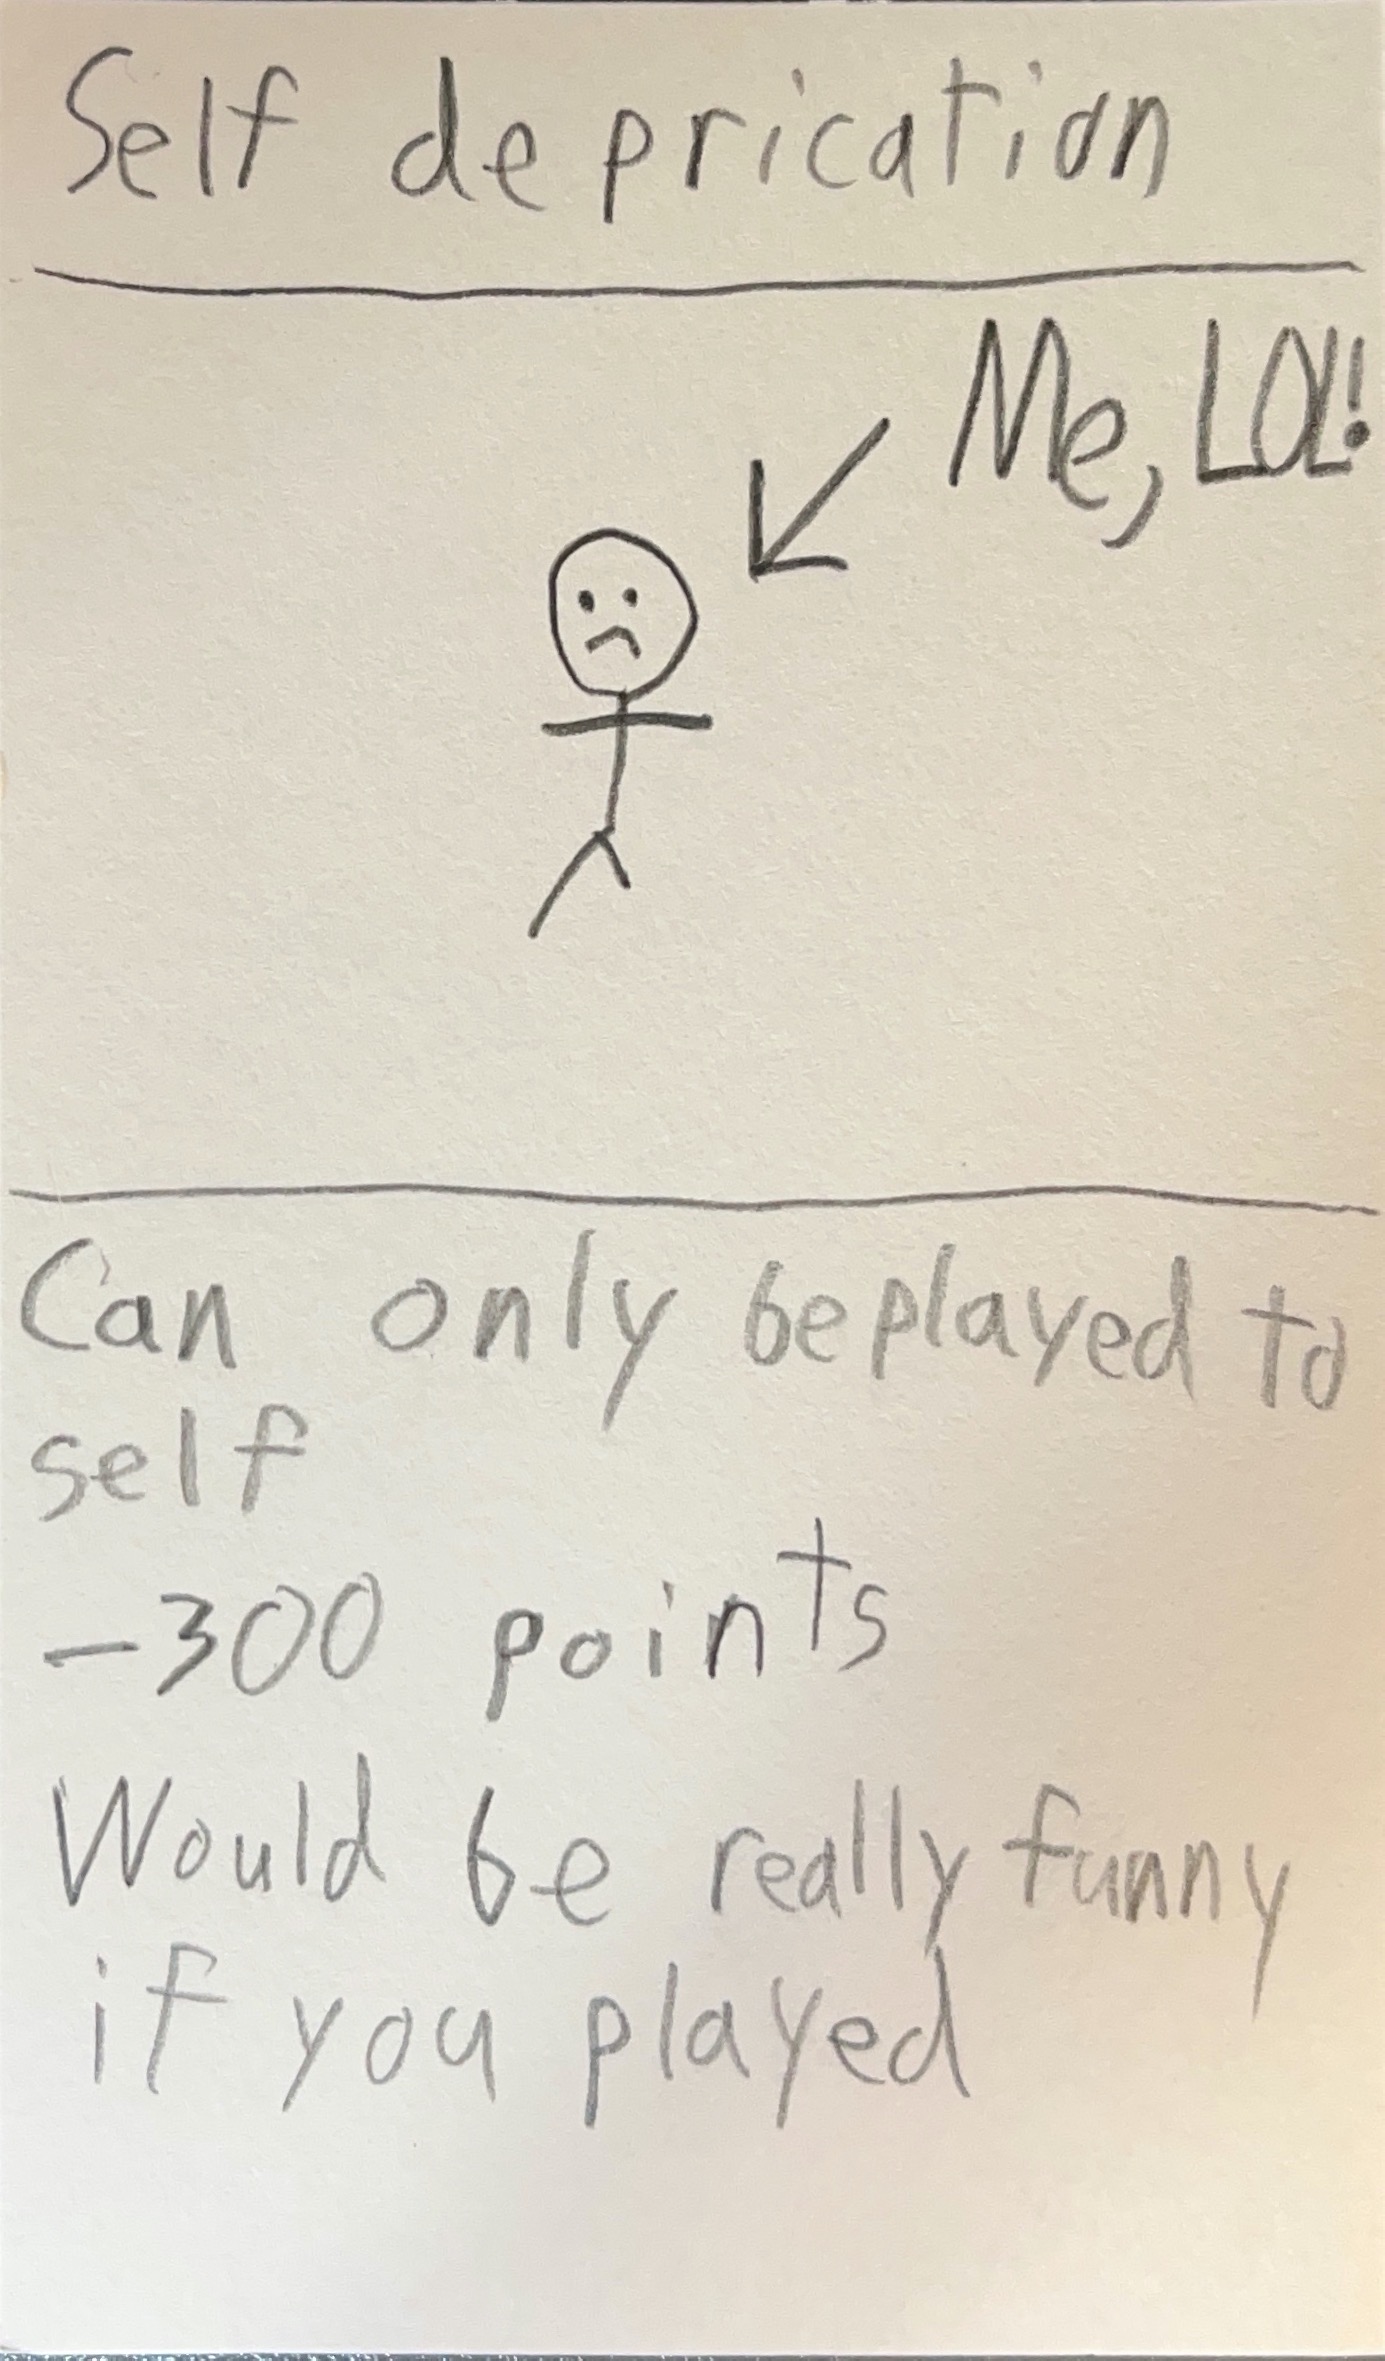 Self deprication
Me, LOL!
Can only be played to
self
-300 points
Would be really funny
if you played